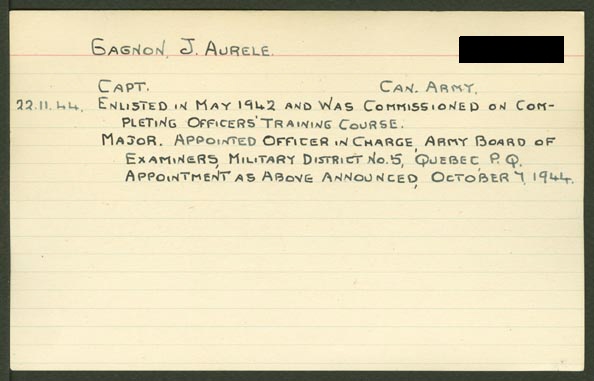 GAGNON, J. AURELE.
CAPT. CAN. ARMY.
22.11.44. ENLISTED IN MAY 1942 AND WAS COMMISSIONED ON COM-
PLETING OFFICERS' TRAINING COURSE.
MAJOR. APPOINTED OFFICER IN CHARGE, ARMY BOARD OF
EXAMINERS, MILITARY DISTRICT NO. 5, QUEBEC, P.Q.
APPOINTMENT AS ABOVE ANNOUNCED, OCTOBER 7, 1944.